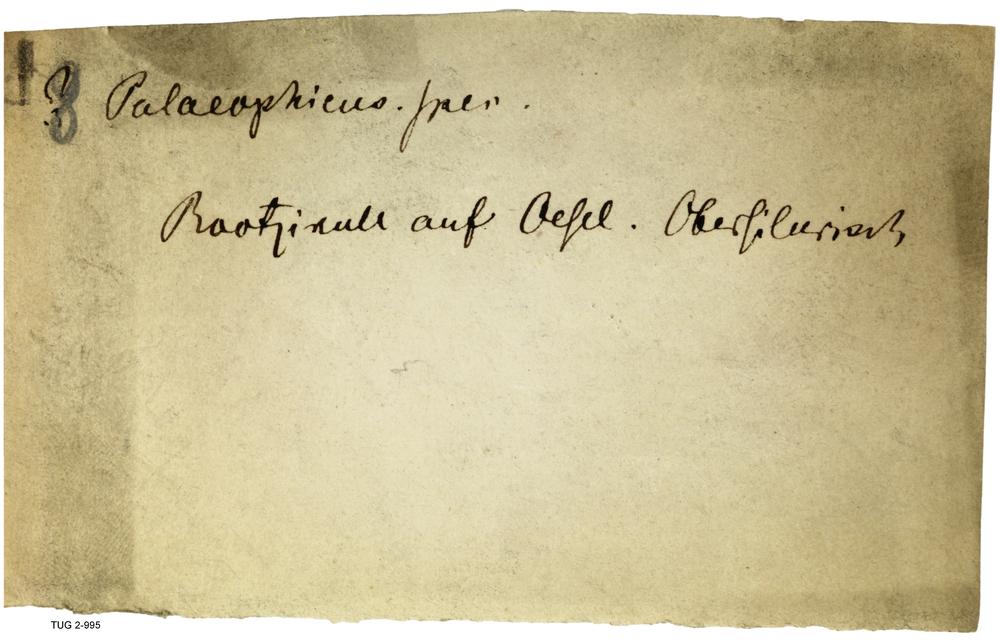 ? Palaeophicus. spec.
Rootziküll auf Oesel. Obersilurisch
TUG 2-995